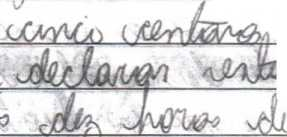 cinco centavos
declaran esta
s diez horas de